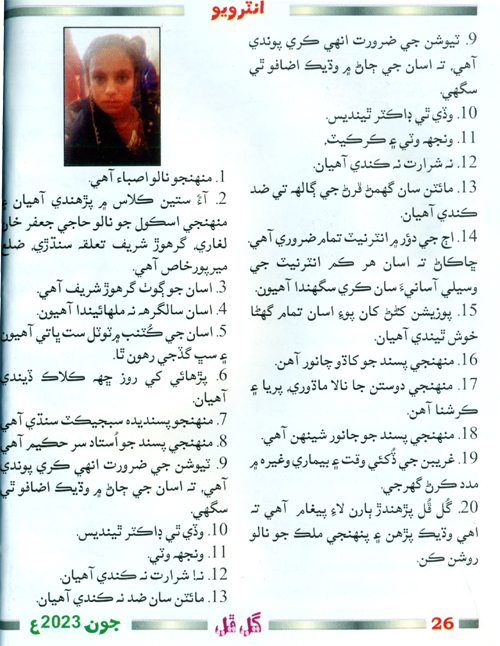 انٽرويو
1. منهنجو نالو اصباء آهي.
2. آءٌ ستين ڪلاس ۾ پڙهندي آهيان ۽
منهنجي اسڪول جو نالو حاجي جعفر خان
لغاري، گرهوڙ شريف تعلقہ سنڌڙي، ضلع
ميرپورخاص آهي.
3. اسان جو ڳوٺ گرهوڙ شريف آهي.
4. اسان سالگرهہ نہ ملهائيندا آهيون.
5. اسان جي ڪُٽنب ۾ ٽوٽل ست ڀاتي آهيون
۽ سڀ گڏجي رهون ٿا.
6. پڙهائي کي روز ڇهہ ڪلاڪ ڏيندي
آهيان.
7. منهنجو پسنديده سبجيڪٽ سنڌي آهي
8. منهنجي پسند جو اُستاد سر حڪيم آهي
9. ٽيوشن جي ضرورت انهي ڪري پوندي
آهي، تہ اسان جي ڄاڻ ۾ وڌيڪ اضافو ٿي
سگهي.
10. وڏي ٿي ڊاڪٽر ٿينديس.
11. ونجهہ وٽي.
12. نہ! شرارت نہ ڪندي آهيان.
13. مائٽن سان ضد نہ ڪندي آهيان
9. ٽيوشن جي ضرورت انهي ڪري پوندي
آهي، تہ اسان جي ڄاڻ ۾ وڌيڪ اضافو ٿي
سگهي.
10. وڏي ٿي ڊاڪٽر ٿينديس.
11. ونجهہ وٽي ۽ ڪرڪيٽ.
12. نہ شرارت نہ ڪندي آهيان.
13. مائٽن سان گهمڻ ڦرڻ جي ڳالهہ تي ضد
ڪندي آهيان.
14. اڄ جي دؤر ۾ انٽرنيٽ تمام ضروري آهي.
ڇاڪاڻ تہ اسان هر ڪم انٽرنيٽ جي
وسيلي آسانيءَ سان ڪري سگهندا آهيون.
15. پوزيشن کڻڻ کان پوءِ اسان تمام گهڻا
خوش ٿيندي آهيان.
16. منهنجي پسند جو کاڌو چانور آهن.
17. منهنجي دوستن جا نالا ماڌوري، پريا ۽
ڪرشنا آهن.
18. منهنجي پسند جو جانور شينهن آهي.
19. غريبن جي ڏُکئي وقت ۽ بيماري وغيره ۾
مدد ڪرڻ گهرجي.
20. گُل ڦُل پڙهندڙ ٻارن لاءِ پيغام آهي تہ
اهي وڌيڪ پڙهن ۽ پنهنجي ملڪ جو نالو
روشن ڪن.
جون 2023ع
گل ڦل
26